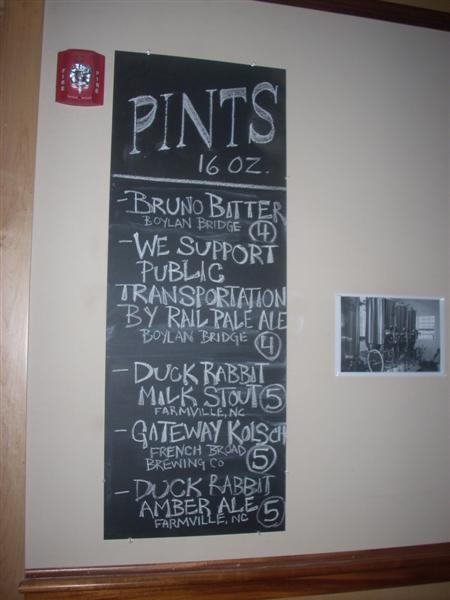 FIRE FIRE
PINTS
16 OZ.
- BRUNO BITTER
BOYLAN BRIDGE 4
- WE SUPPORT
PUBLIC
TRANSPORTATION
BY RAIL PALE ALE
BOYLAN BRIDGE 4
- DUCK RABBIT
MILK STOUT 5
FARMVILLE, NC
- GATEWAY KOLSCH
FRENCH BROAD
BREWING CO 5
- DUCK RABBIT
AMBER ALE 5
FARMVILLE, NC